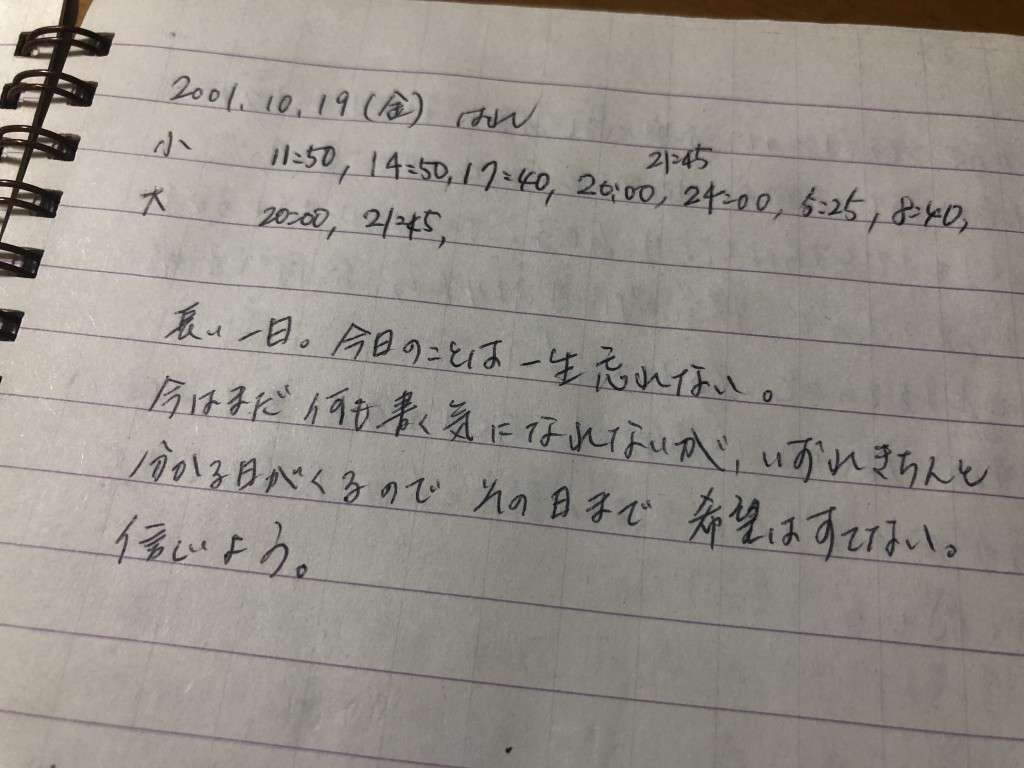 2001.10.19(金) はれ
21=45
小 11=50, 14=50, 17=40, 20:00, 24=00, 5=25, 8=40,
大 20=00, 21=45,
長い一日。今日のことは一生忘れない。
今はまだ何も書く気になれないが、いずれきちんと
分かる日がくるので その日まで 希望はすてない。
信じよう。